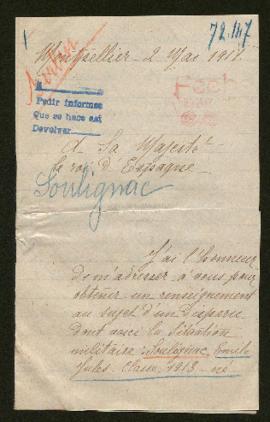 1
72.147
Montpellier - 2 Mai 1917
A
Pedir informes
Que se hace est
Devolver
A Sa Majesté
le roi d'Espagne
Soulignac
J'ai l'honneur
de m'adresser à vous pour
obtenir un renseignement
au sujet d'un disparu
dont voici la situation
militaire: Soulignac, Emile
Jules. Classe 1913 - né